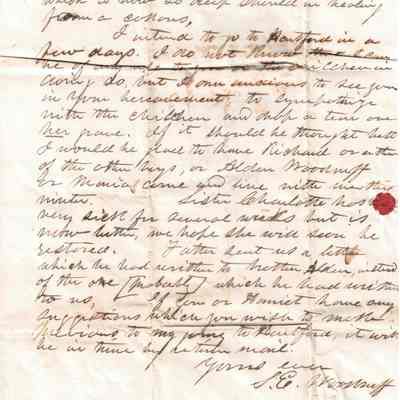 which is now so deep should in healing
from a
I intend to go to Hartford in a
few days. I do not know that I can
be of to you or the children in
doing so, but I am anxious to see you
in your bereavement, to sympathize
with the children and drop a tear over
her grave. If it should be thought best
I would be glad to have Richard or either
of the other boys, or Alden Woodruff
or Maria come and live with me this
winter. Sister Charlotte has
very sick for several weeks but is
now better, we hope she will soon be
restored. Father sent us a letter
which he had written to brother Alden, instead
of the one (probably) which he had written
to us, If you or Harriet have any
suggestions which you wish to make
previous to my going to Hartford, it will
be in time by return mail.
Yours ever
S. E. Woodruff